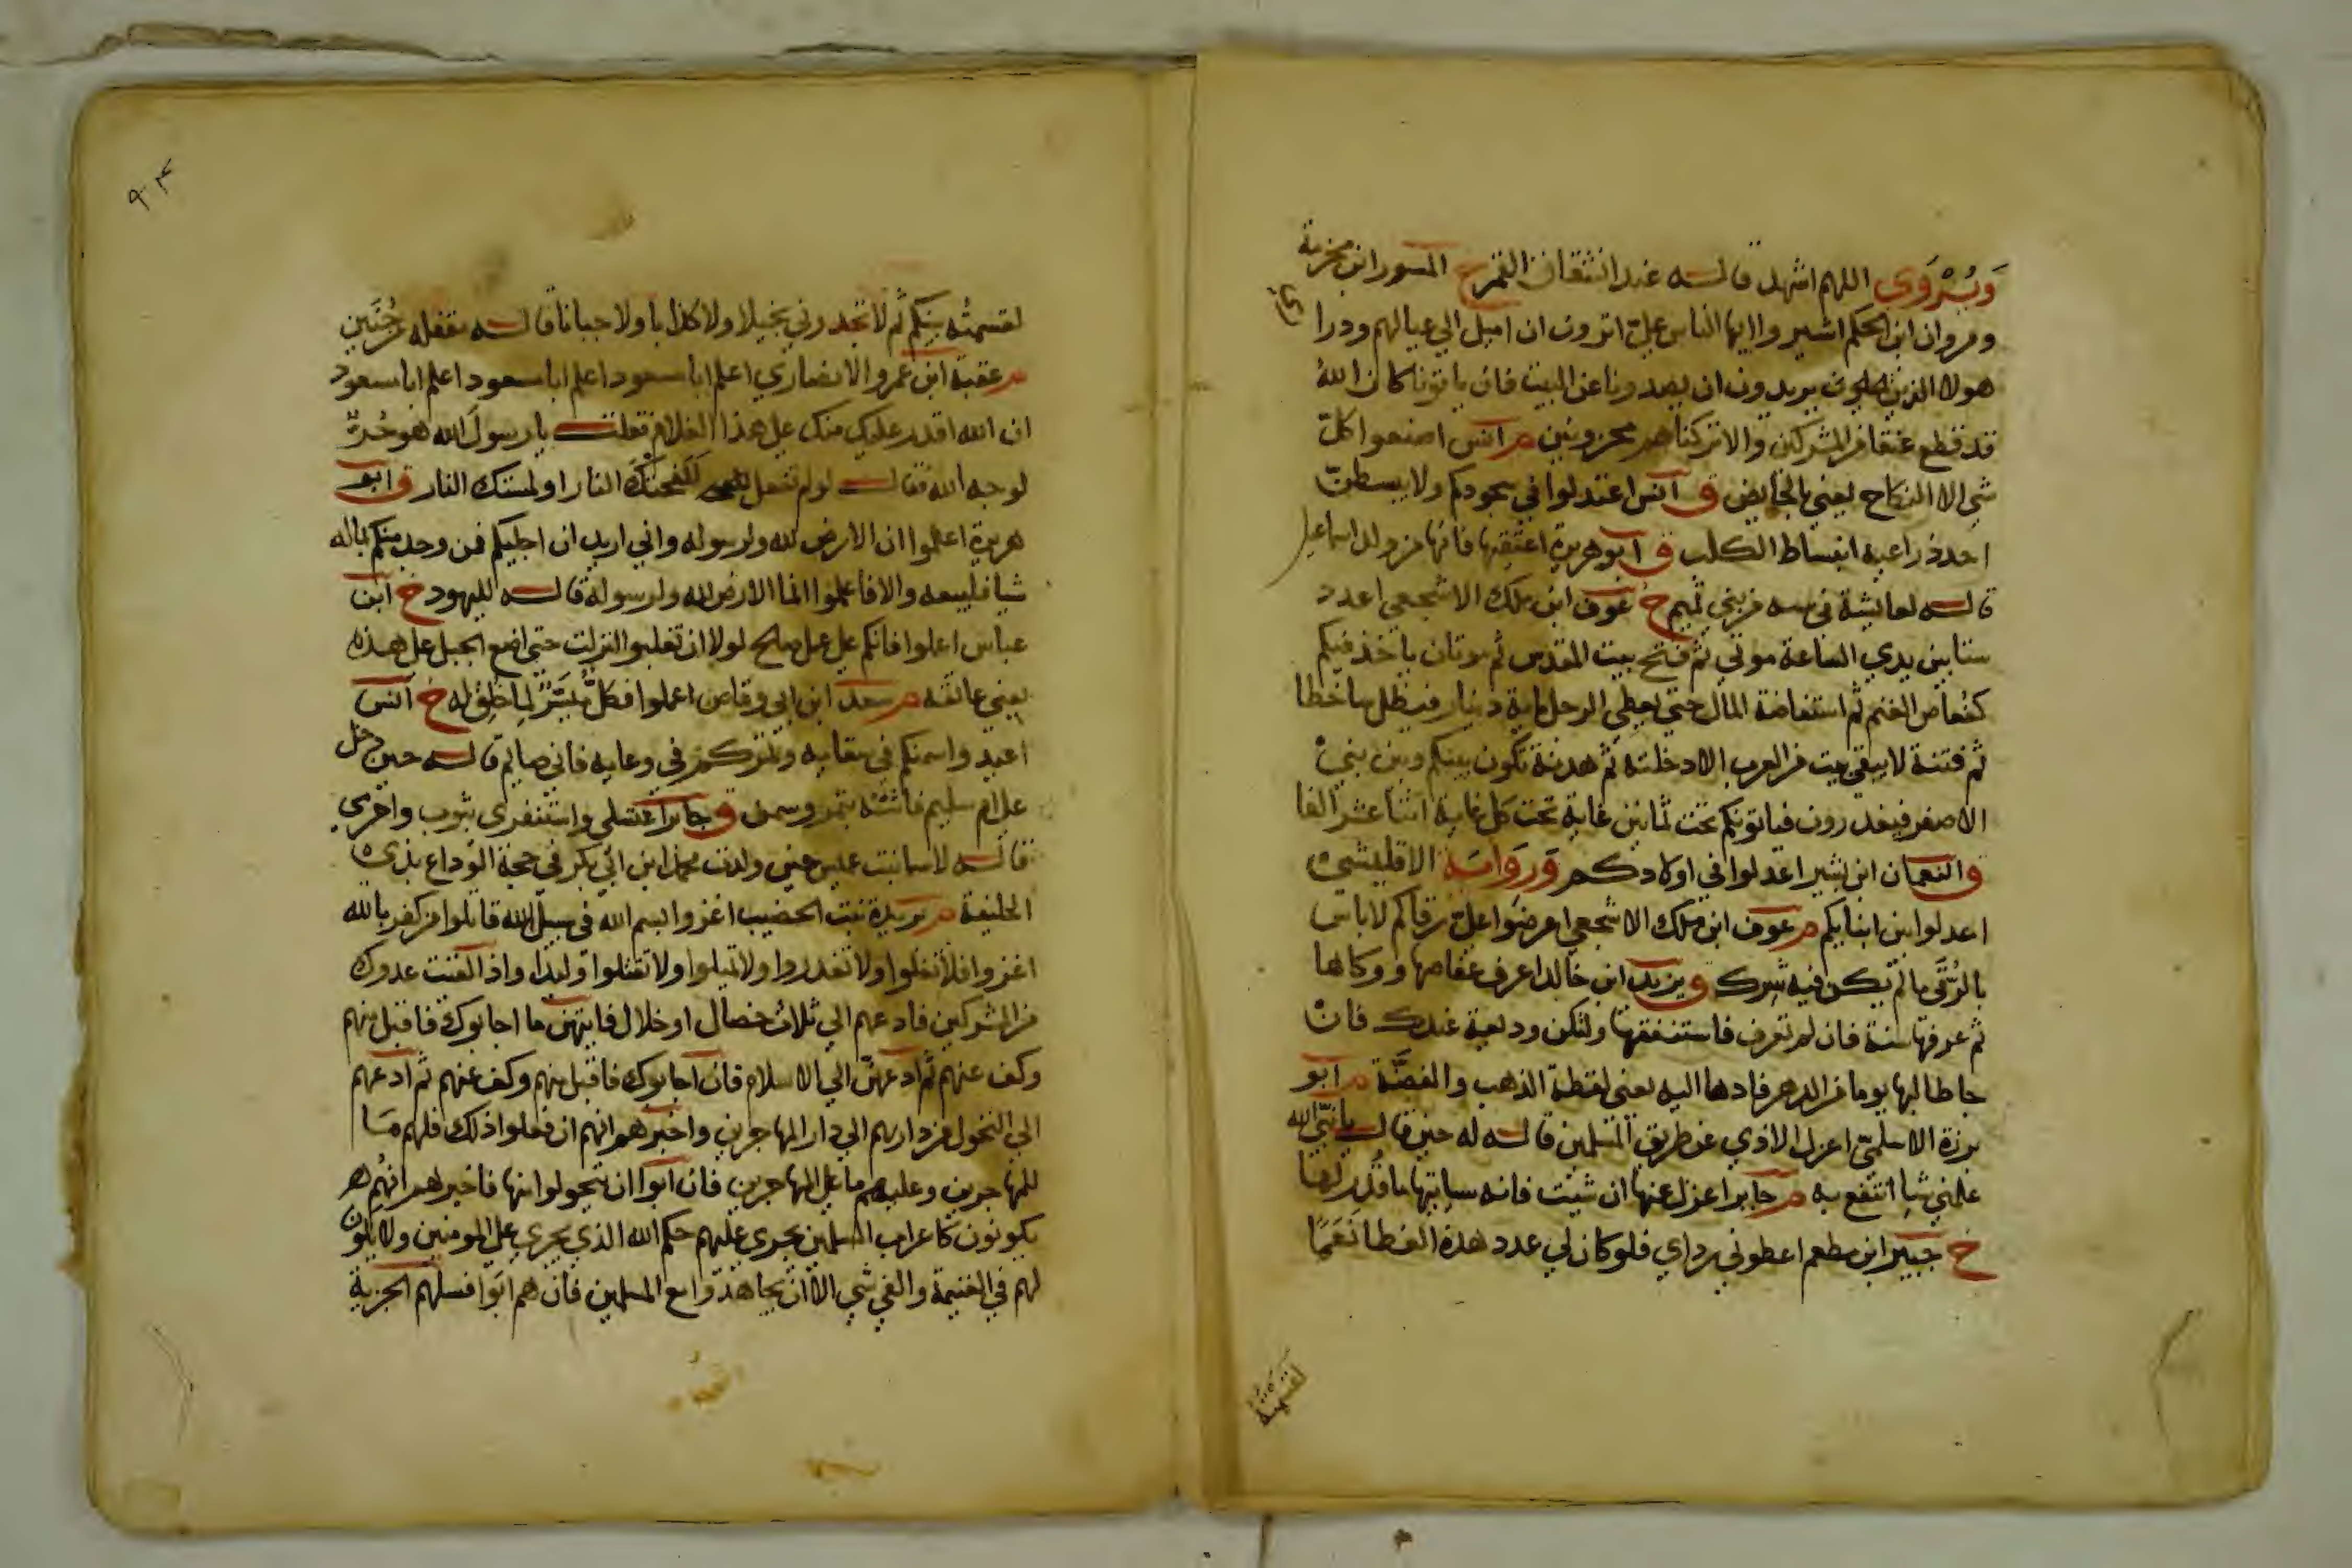 وَيُرْوَى اللهم اشهد قاله عند انشقاق القمر خ المسور ابن مخرمة
ومروان ابن الحكم اشيروا ايها الناس علىّ اترون ان اميل الي عيالهم وذراري
هولا الذين يريدون ان يصدونا عن البيت فان ياتونا كان الله
قد قطع عنقا من المشركين والا تركناهم محزونين م انس اصنعوا كلّ
شي الا النكاح يعني بالحايض ق انس اعتدلوا في سجودكم ولا يبسطنّ
احد ذراعيه انبساط الكلب ق ابو هريرة اعتقيها فانها من ولد اسماعيل
قاله لعايشة في سبيه من بني تميم خ عوف ابن ملك الاشجعي اعدد
ستا بين يدي الساعة موتي ثم فتح بيت المقدس ثم موتان ياخذ فيكم
كقعاص الغنم ثم استفاضة المال حتي يعطي الرجل ماية دينار فيظل ساخطا
ثم فتنة لا يبقي بيت من العرب الا دخلته ثم هدنة تكون بينكم وبين بني
الاصفر فيغدرون فياتونكم تحت ثمانين غاية تحت كل غاية اثنا عشر الفا
ق النعمان ابن بشير اعدلوا في اولادكم وَرَوَايَة الاقليشي
اعدلوا بين ابنايكم م عوف ابن ملك الاشجعي اعرضوا علىّ رقاكم لا باس
بالرُّقَى ما لم يكن فيه شرك ق يزيد ابن خالد اعرف عفاصها ووكاها
ثم عرفها سنة فان لم تعرف فاستنفقها ولتكن وديعة عندك فان
جا طالبها يوما من الدهر فادها اليه يعني لقطة الذهب والفضّة م ابو
برزة الاسلمي اعزل الاذي عن طريق المسلمين قاله له حين قال يا نبي الله
علمني شيا انتفع به م جابر اعزل عنها ان شيت فانه سياتيها ما قُدر لها
خ جبير ابن مطعم اعطوني رداي فلو كان لي عدد هذه العضا نَعَمًا
لقسمته
٩٠٤
لقسمتُه بينكم ثم لا تجدوني بخيلا ولا كذابا ولا جبانا قاله مقفله من حُنَين
م عقبة ابن عمرو الانصاري اعلم ابا مسعود اعلم ابا مسعود اعلم ابا مسعود
ان الله اقدر عليك منك على هذا الغلام فقلت يا رسول الله هو حُرٌّ
لوجه الله فقال لو لم تفعل للفحتك النار او لمستك النار ق ابو
هريرة اعلموا ان الارض لله ولرسوله واني اريد ان اجليكم فمن وجد منكم بماله
شيا فليبعه والا فاعلموا انما الارض لله ولرسوله قاله لليهود خ ابن
عباس اعملوا فانكم على عمل صالح لولا ان تغلبوا لنزلت حتى اضع الحبل على هذه
يعني عاتقه م سعد ابن ابي وقاص اعملوا فكلٌّ مُيَسَّرٌ لما خُلِق له خ انس
اعيدوا سمنكم في سقايه وتمركم في وعايه فاني صايم قاله حين دخل
على ام سليم فاتته بتمر وسمن ق جابر اغتسلي واستثفري بثوب واحرمي
قاله لاسما بنت عميس حين ولدت محمد ابن ابي بكر في حجة الوداع بذي
الحليفة م بريدة بنت الحصيب اغزوا بسم الله في سبيل الله قاتلوا من كفر بالله
اغزوا فلا تغلوا ولا تغدروا ولا تمثلوا ولا تقتلوا وليدا واذا لقيت عدوك
من المشركين فادعهم الي ثلاث خصال او خلال فايتهن ما اجابوك فاقبل منهم
وكف عنهم ثم ادعهم الي الاسلام فان اجابوك فاقبل منهم وكف عنهم ثم ادعهم
الي التحول من دارهم الي دار المهاجرين واخبرهم انهم ان فعلوا ذلك فلهم ما
للمهاجرين وعليهم ما على المهاجرين فان ابوا ان يتحولوا منها فاخبرهم انهم
يكونون كاعراب المسلمين يجرى عليهم حكم الله الذي يجري على المومنين ولا يكون
لهم في الغنيمة والفي شي الا ان يجاهدوا مع المسلمين فان هم ابوا فسلهم الجزية